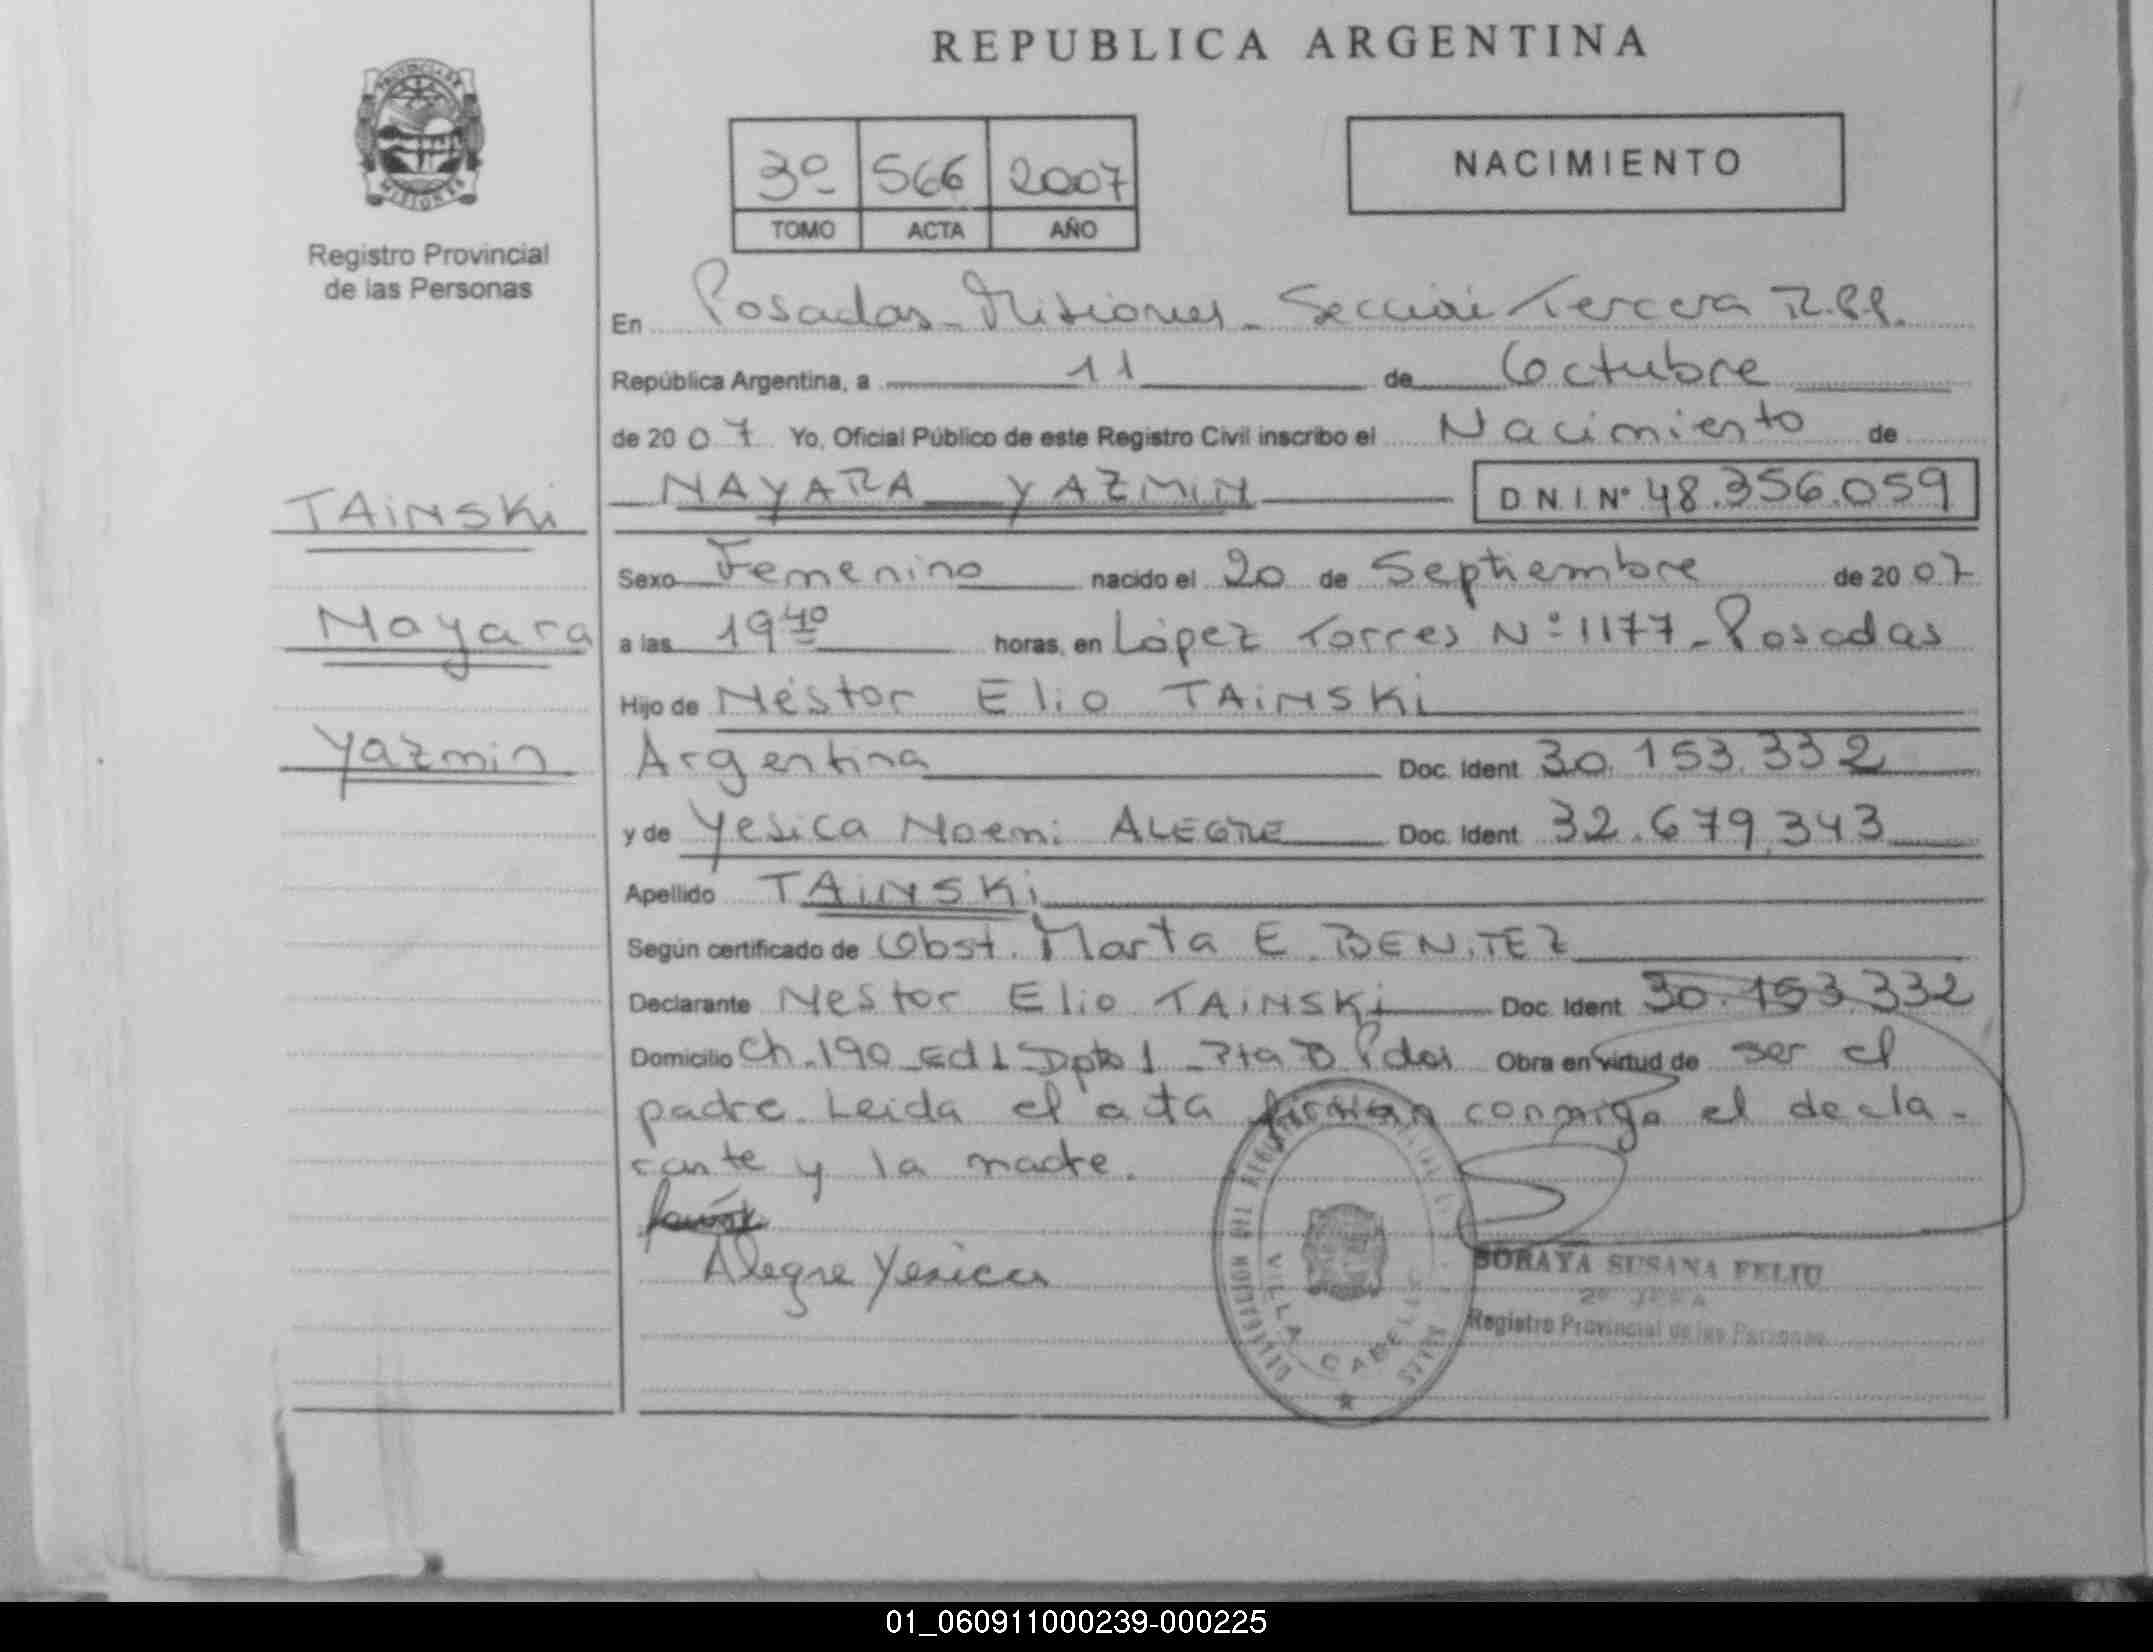 REPUBLICA ARGENTINA
PROVINCIA DE
MISIONES
Registro Provincial
de las Personas
3º 566 2007
TOMO ACTA AÑO
NACIMIENTO
En Posadas - Misiones - Sección Tercera R.P.P.
República Argentina, a 11 de Octubre
de 2007 Yo, Oficial Público de este Registro Civil inscribo el Nacimiento de
NAYARA YAZMIN D.N.I. Nº 48.356.059
TAiNSKi
Nayara
Yazmin
Sexo Femenino nacido el 20 de Septiembre de 2007
a las 19 40 horas, en López Torres Nº 1177 - Posadas
Hijo de Néstor Elio TAiNSKi
Argentina Doc. Ident 30.153.332
y de Yesica Noemi ALEGRE Doc. Ident 32.679.343
Apellido TAiNSKi
Según certificado de Obst. Marta E. BENiTEZ
Declarante Nestor Elio TAiNSKi Doc. Ident 30.153.332
Domicilio Ch. 190 Ed 1 Dpto 1 - Pta B Pdas Obra en virtud de ser el
padre. Leida el acta firman conmigo el decla-
rante y la madre.
Alegre Yesica
VILLA CABELLO
SORAYA SUSANA FELIU
2º JEFA
Registro Provincial de las Personas
01_060911000239-000225